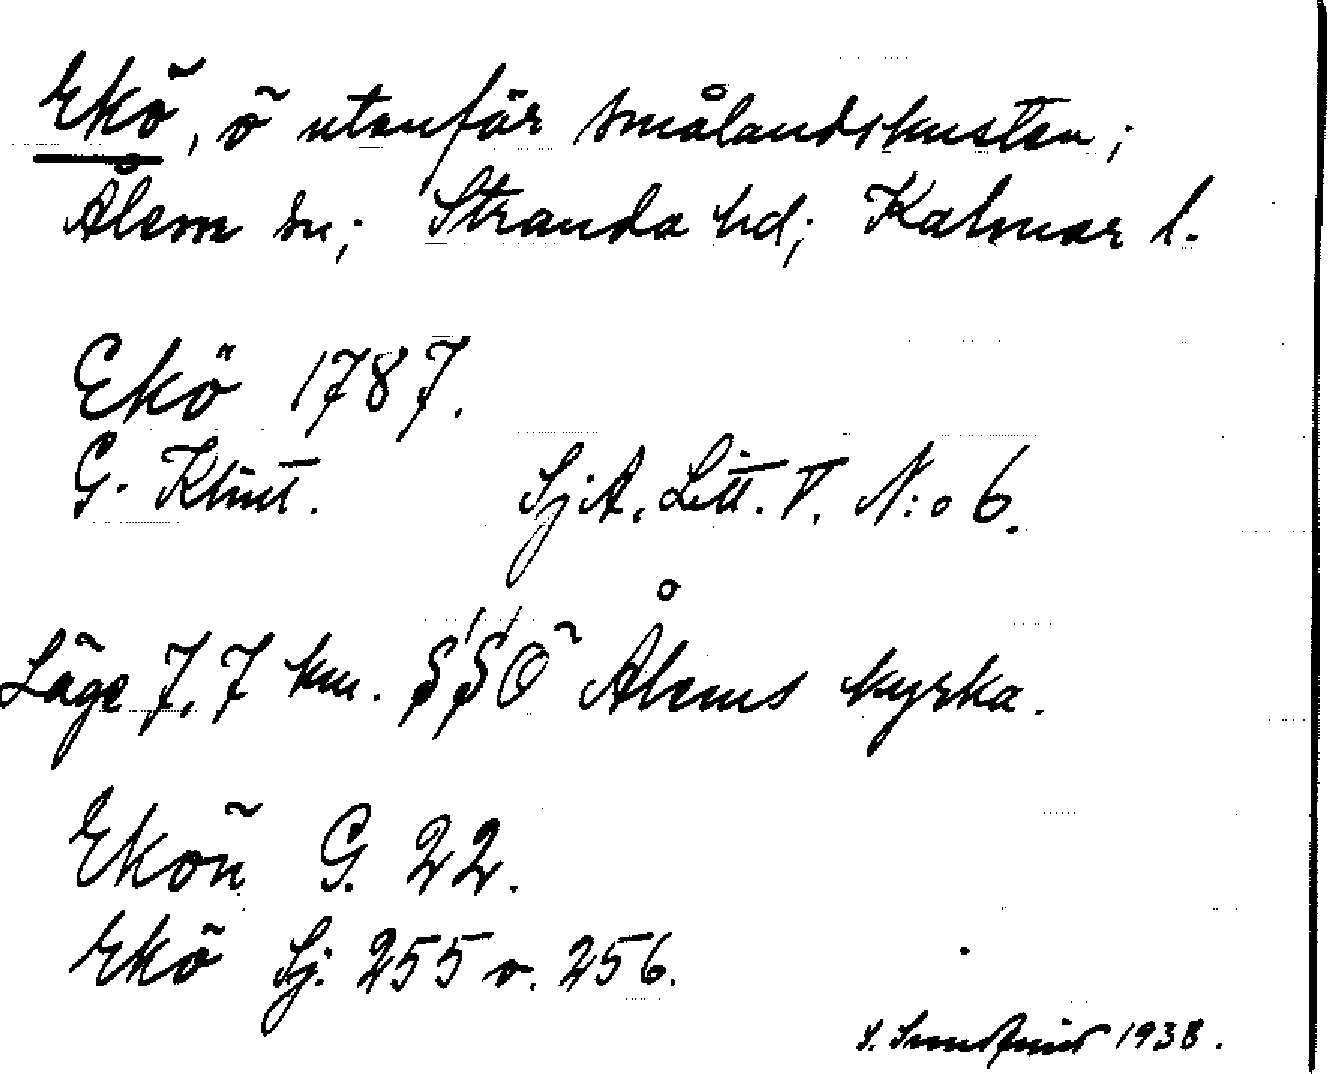 Ekö, ö utanför smålandskusten;
Ålem sn; Stranda hd; Kalmar l.
Ekö 1787.
G. Klint. SjA. Litt. V. N:o 6.
Läge 7,7 km. SSO Ålems kyrka.
Ekön G. 22.
Ekö Sj. 255 o. 256.
1938.